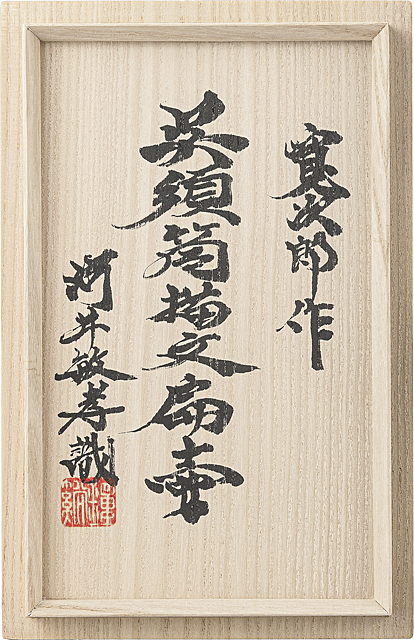 寛次郎作
呉須筒描文扁壷
河井敏孝識